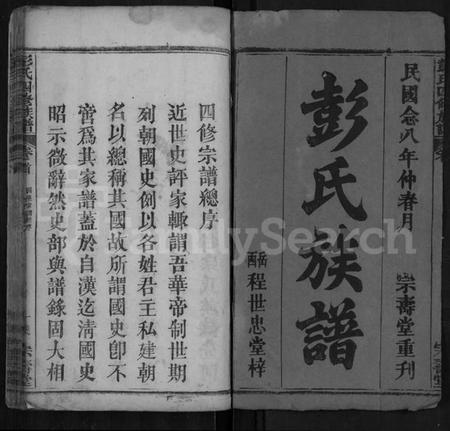 民國念八年仲春月
宗壽堂重刊
彭氏族譜
酉畬程世忠堂梓
四修宗譜總序
近世史評家輒謂吾華帝制世期
列朝國史例以各姓君主私建朝
名以總稱其國故所謂國史卽不
啻爲其家譜蓋於自漢迄清國史
昭示微辭然史部與譜錄固大相
彭氏四修族譜
卷首
宗壽堂
FamilySearch